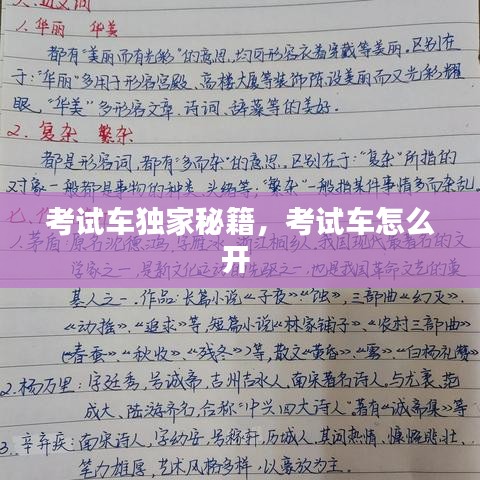 六、近义词
1. 华丽 华美
都有“美丽而有光彩”的意思,均可形容衣着穿戴等美丽。区别在
于:“华丽”多用于形容宫殿、高楼大厦等装饰陈设美丽而又光彩耀
眼,“华美”多形容文章、诗词、辞藻等的美好。
2. 复杂 繁杂
都是形容词,都有“多而杂”的意思。区别在于:“复杂”所指的
对象一般都是事物的种类、头绪等,“繁杂”一般指某件事情多而杂乱。
考试车独家秘籍，考试车怎么
开
1. 茅盾:原名沈德鸿,字雁冰,浙江桐乡人,我国现代最著名的文
学家之一,是新文化运动的先驱之一,也是我国革命文艺的奠
基人之一.作品:长篇小说《子夜》:《蚀》,三部曲《幻灭》.
《动摇》、《追求》等,短篇小说《林家铺子》.《农村三部曲
(《春蚕》《秋收》、《残冬》)等,散文《黄昏》、《雷》、《白杨礼赞》
2. 杨万里:字廷秀,号诚斋,吉州吉水人,南宋著名诗人。与尤袤、范
成大、陆游齐名,合称“中兴四大诗人”著有《诚斋集》等
3. 辛弃疾:南宋诗人,字幼安,号稼轩,历城人,其词热情、慷慨悲壮、
笔力雄厚,艺术风格多样,以豪放为主。